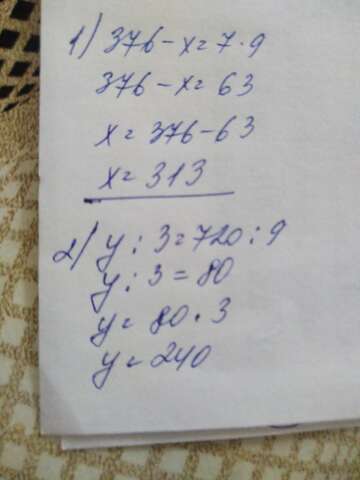 1) 376 - x = 7 · 9
376 - x = 63
x = 376 - 63
x = 313
2) y : 3 = 720 : 9
y : 3 = 80
y = 80 · 3
y = 240